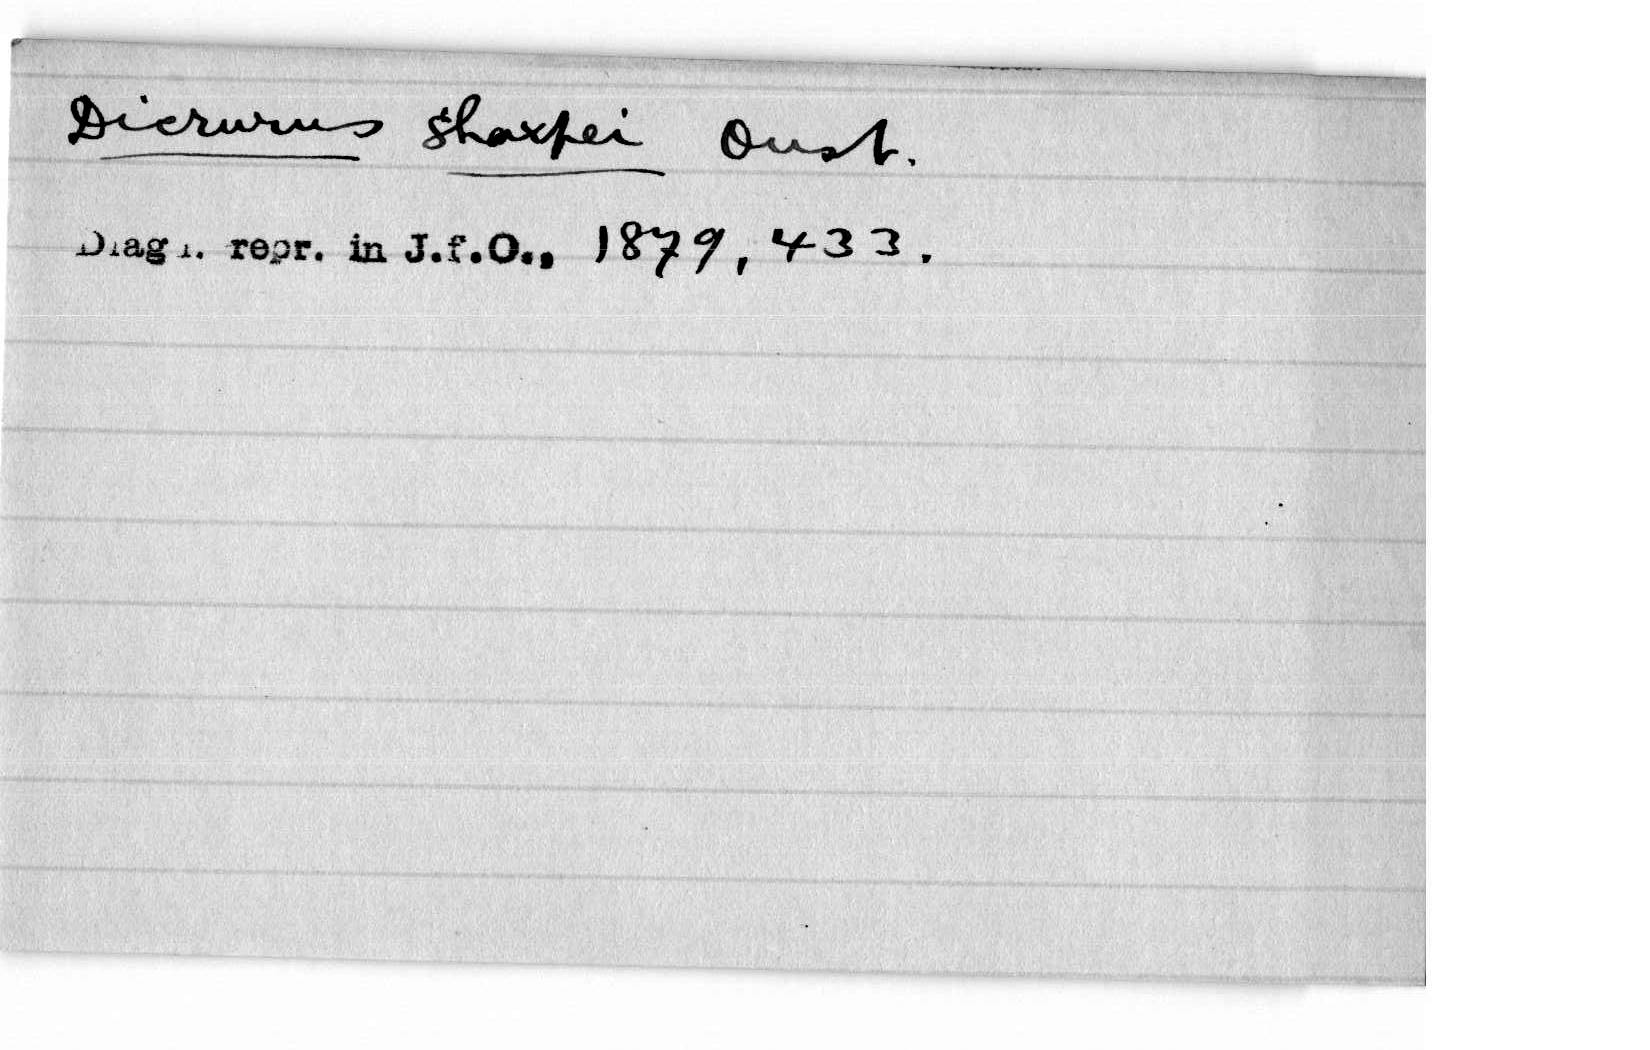 Dicrurus sharpei Oust.
Diagn. repr. in J.f.O., 1879, 433.